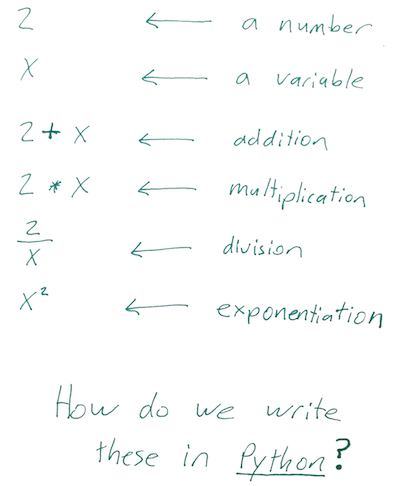 2 ← a number
x ← a variable
2 + x ← addition
2 * x ← multiplication
2/x ← division
x² ← exponentiation
How do we write
these in Python?